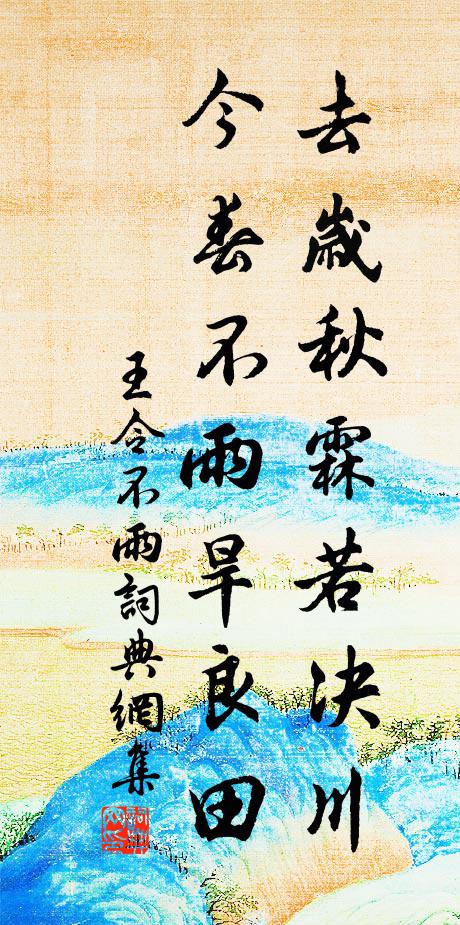 去歲秋霖若決川
今春不雨旱良田
王令不雨詞典網集